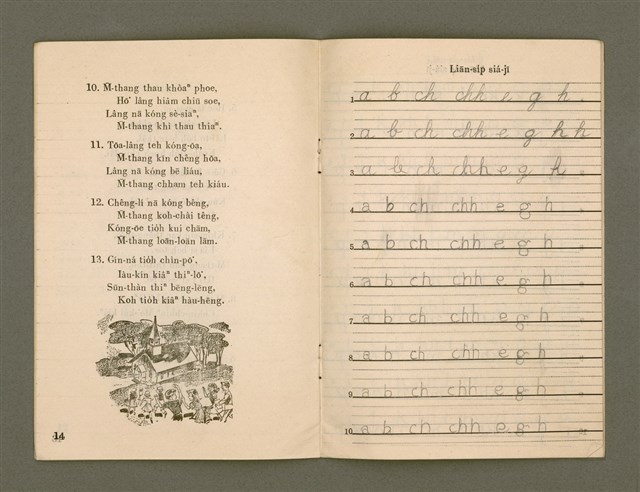 10. M̄-thang thau khòaⁿ phoe,
Hō͘ lâng hiâm chiū soe,
Lâng nā kóng sè-siaⁿ,
M̄-thang khì thau thiaⁿ.
11. Tōa-lâng teh kóng-ōa,
M̄-thang kín chêng hōa,
Lâng nā kóng bē liáu,
M̄-thang chham teh kiáu.
12. Chêng-lí nā kóng bêng,
M̄-thang koh-chài têng,
Kóng-ōe tio̍h kui chām,
M̄-thang loān-loān lām.
13. Gín-ná tio̍h chìn-pō͘,
Iàu-kín kiâⁿ thiⁿ-lō͘,
Sūn-thàn thiⁿ bēng-lēng,
Koh tio̍h kiâⁿ hàu-hēng.
14
Liān-si̍p siá-jī
1 a b ch chh e g h
2 a b ch chh e g h h
3 a b ch chh e g h
4 a b ch chh e g h
5 a b ch chh e g h
6 a b ch chh e g h
7 a b ch chh e g h
8 a b ch chh e g h
9 a b ch chh e g h
10 a b ch chh e g h